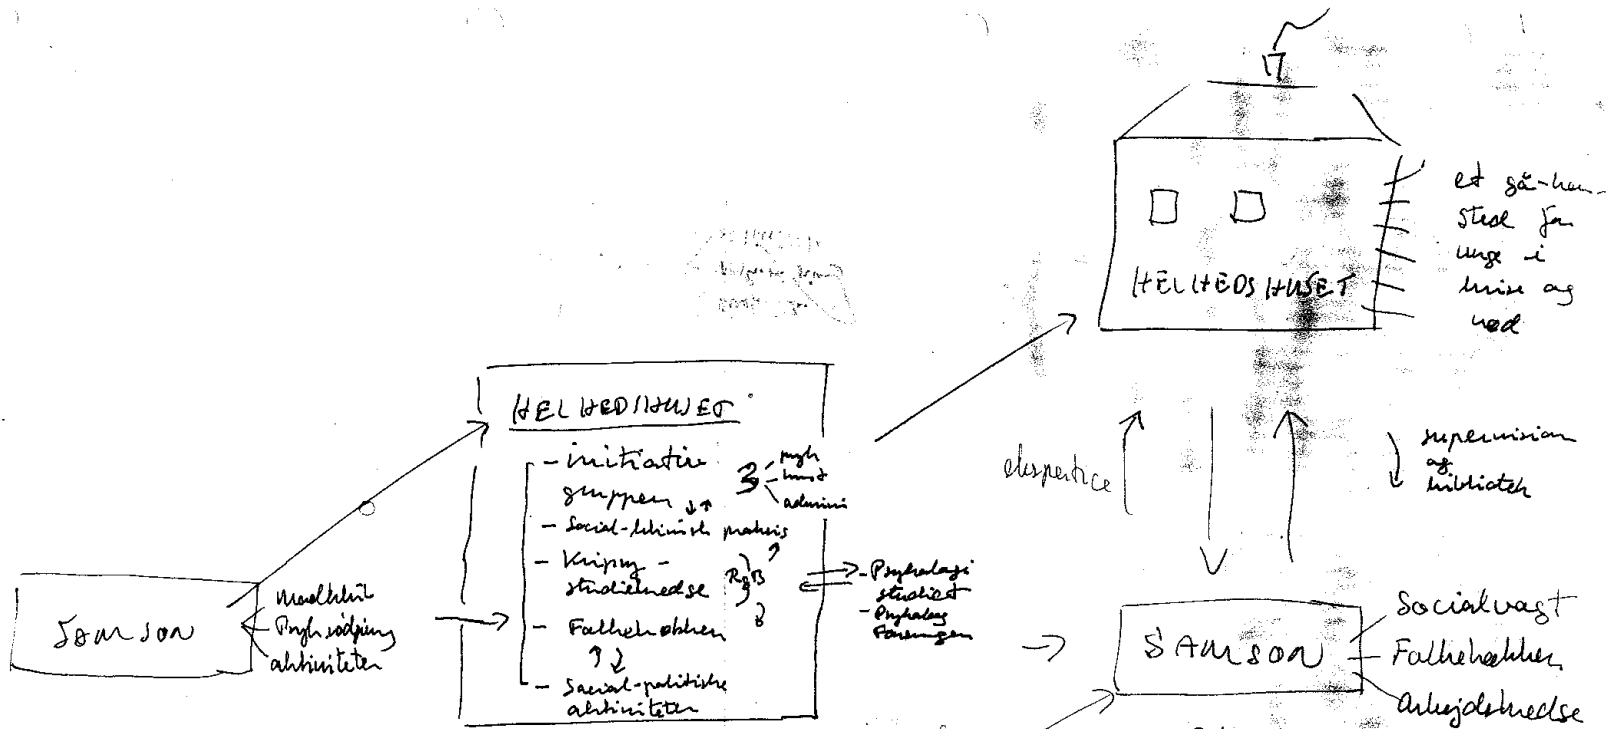 SAMSON
Madklub
Psyk rådgivning
aktiviteter
HELHEDSHUSET
- initiativ
gruppen
psyk
kunst
admini
- Social-klinisk praksis
studiekredse
R & B
- Falkehakken
- Social-politiske
aktiviteter
- Psykologi
studiet
- Psykolog
Foreningen
17
HELHEDSHUSET
et gå-hen-
sted for
unge i
krise og
nød
ekspertice
supervision
og
bibliotek
SAMSON
Socialvagt
Falkehakken
Arbejdskredse